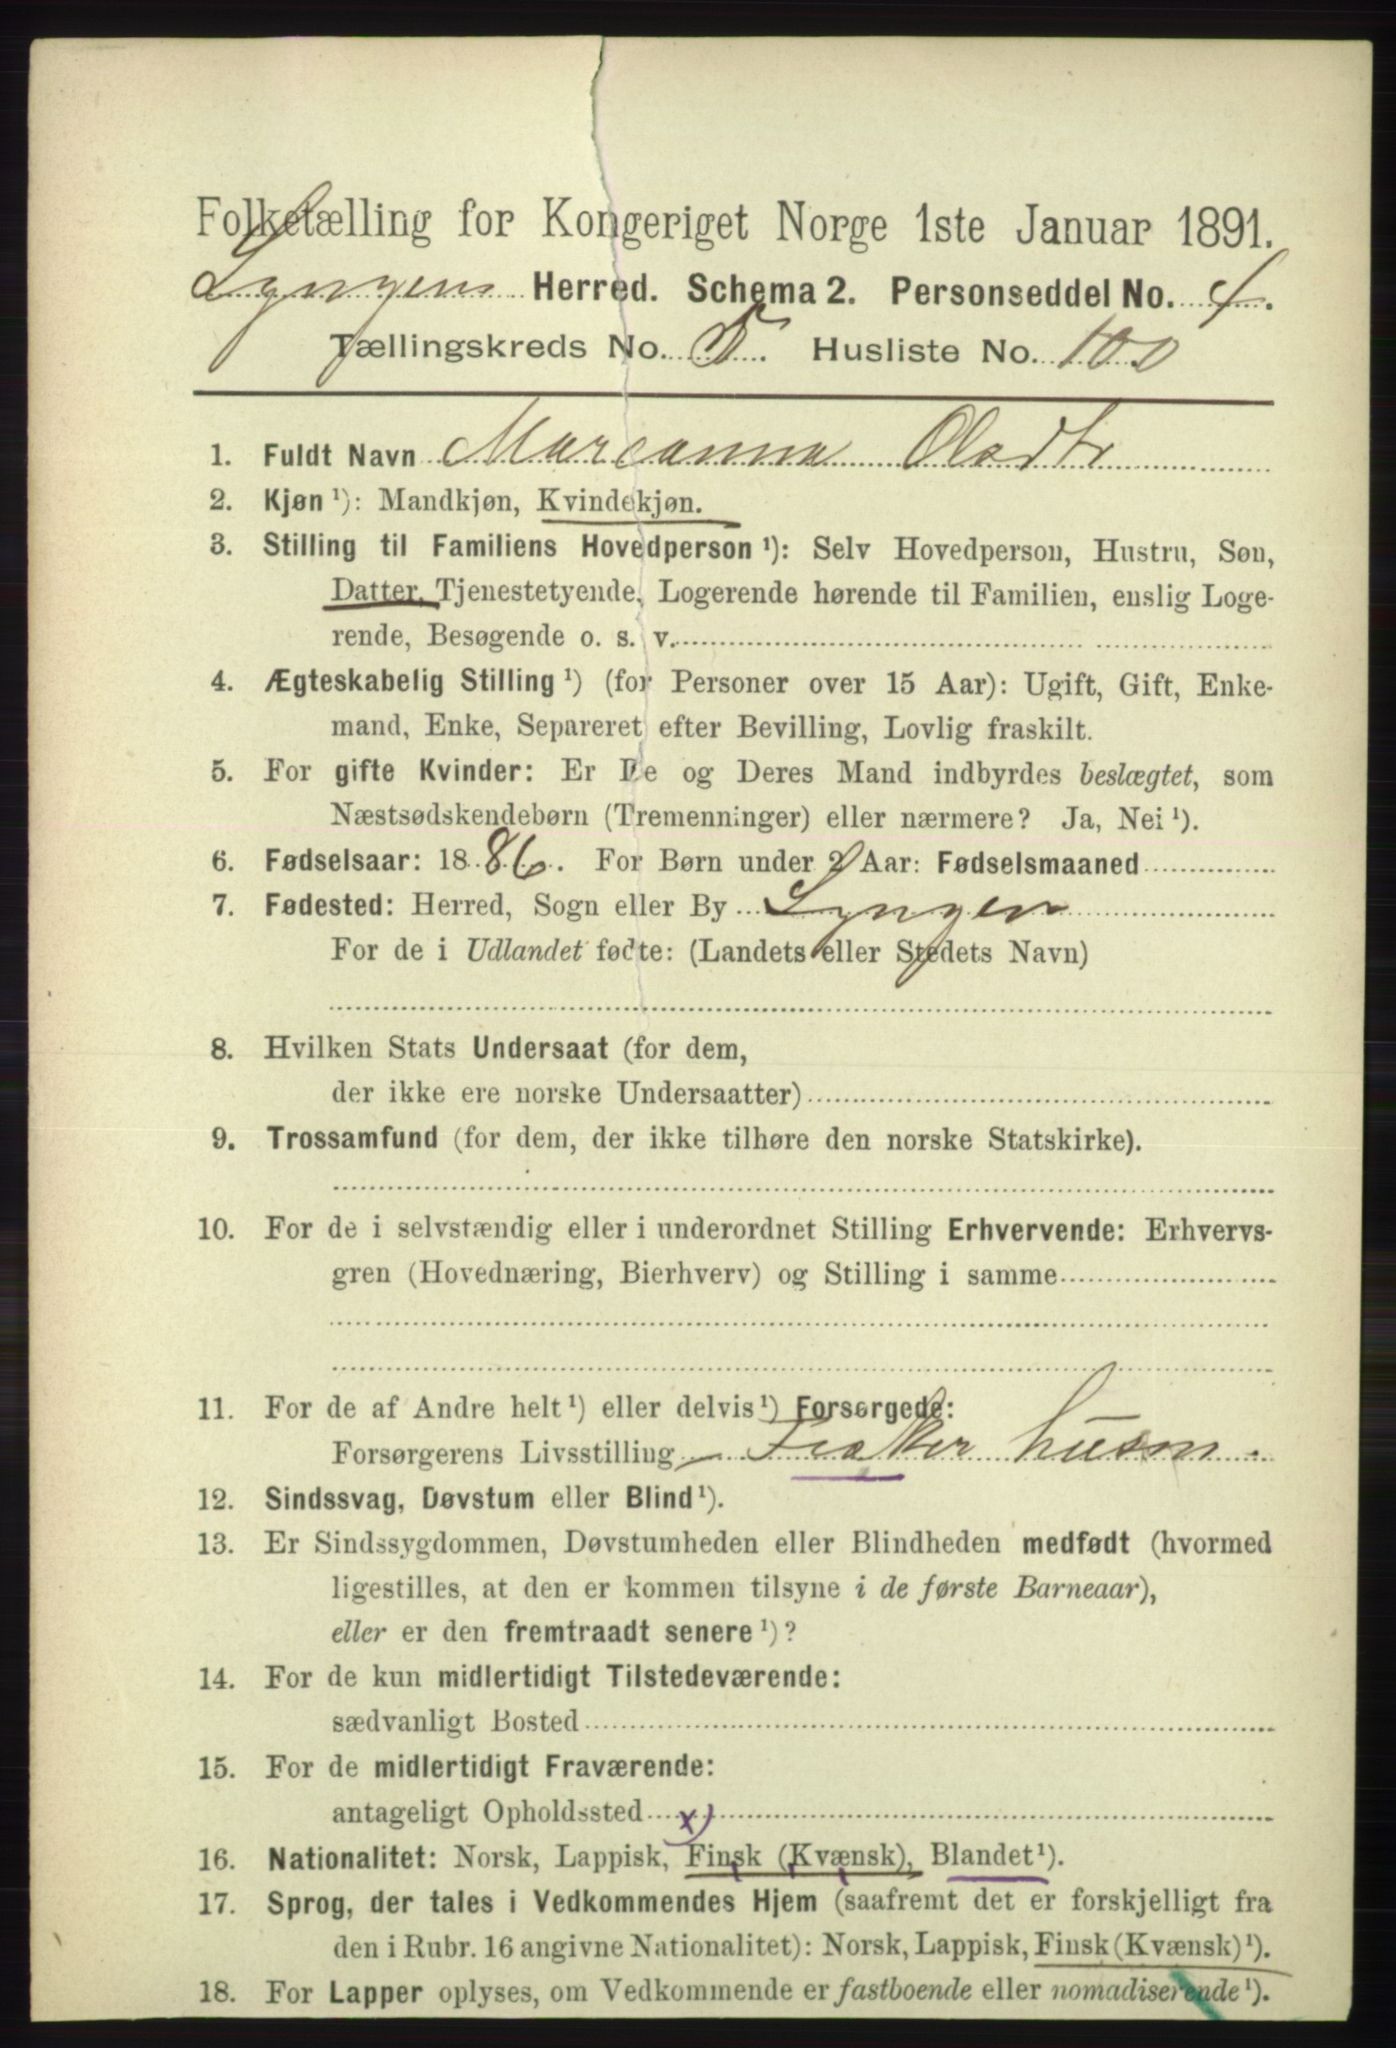 Folketælling for Kongeriget Norge 1ste Januar 1891.
Lyngen Herred. Schema 2. Personseddel No. 4.
Tællingskreds No. 5. Husliste No. 100
1. Fuldt Navn Mareanna Olsdtr
2. Kjøn ¹): Mandkjøn, Kvindekjøn.
3. Stilling til Familiens Hovedperson ¹): Selv Hovedperson, Hustru, Søn,
Datter, Tjenestetyende, Logerende hørende til Familien, enslig Loge-
rende, Besøgende o. s. v.
4. Ægteskabelig Stilling ¹) (for Personer over 15 Aar): Ugift, Gift, Enke-
mand, Enke, Separeret efter Bevilling, Lovlig fraskilt.
5. For gifte Kvinder: Er De og Deres Mand indbyrdes beslægtet, som
Næstsødskendebørn (Tremenninger) eller nærmere? Ja, Nei ¹).
6. Fødselsaar: 1886. For Børn under 2 Aar: Fødselsmaaned
7. Fødested: Herred, Sogn eller By Lyngen
For de i Udlandet fødte: (Landets eller Stedets Navn)
8. Hvilken Stats Undersaat (for dem,
der ikke ere norske Undersaatter)
9. Trossamfund (for dem, der ikke tilhøre den norske Statskirke).
10. For de i selvstændig eller i underordnet Stilling Erhvervende: Erhvervs-
gren (Hovednæring, Bierhverv) og Stilling i samme
11. For de af Andre helt ¹) eller delvis ¹) Forsørgede:
Forsørgerens Livsstilling
12. Sindssvag, Døvstum eller Blind ¹).
13. Er Sindssygdommen, Døvstumheden eller Blindheden medfødt (hvormed
ligestilles, at den er kommen tilsyne i de første Barneaar),
eller er den fremtraadt senere ¹)?
14. For de kun midlertidigt Tilstedeværende:
sædvanligt Bosted
15. For de midlertidigt Fraværende:
antageligt Opholdssted x)
16. Nationalitet: Norsk, Lappisk, Finsk (Kvænsk), Blandet ¹).
17. Sprog, der tales i Vedkommendes Hjem (saafremt det er forskjelligt fra
den i Rubr. 16 angivne Nationalitet): Norsk, Lappisk, Finsk (Kvænsk) ¹).
18. For Lapper oplyses, om Vedkommende er fastboende eller nomadiserende ¹).